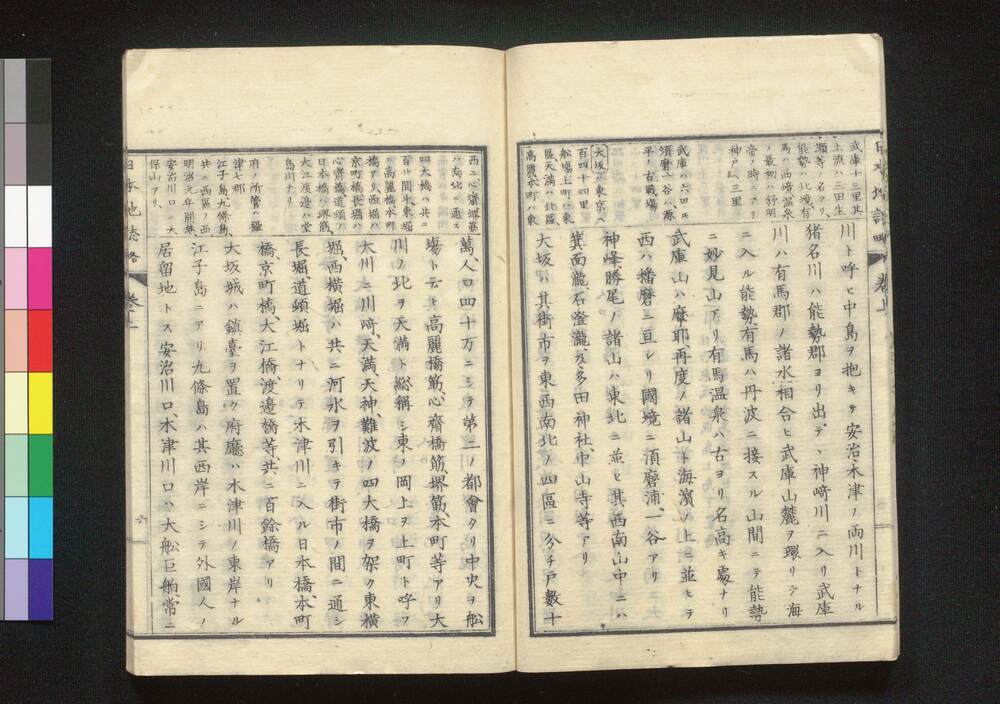 武庫十三里其
上流ハ三田生
瀬等ノ名アリ、
能勢ハ北境有
馬ハ西境温泉
ノ最初ハ舒明
帝ノ時ニアリ
神戸ヘ三里
武庫ハ六四氏
須磨一谷ハ源
平ノ古戦場
大坂ハ東京ヘ
百四十四里
舩塲上町ハ東
區天滿ハ北區
高麗本町ハ東
川ト呼ヒ中島ヲ抱キテ安治木津ノ両川トナル
猪名川ハ能勢郡ヨリ出デ、神﨑川ニ入リ武庫
川ハ有馬郡ノ諸水相合ヒ武庫山麓ヲ環リテ海
ニ入ル能勢有馬ハ丹波ニ接スル山間ニテ能勢
ニ妙見山アリ有馬温泉ハ古ヨリ名高キ處ナリ
武庫山ハ摩耶再度ノ諸山ト海濱ノ上ニ並ヒテ
西ハ播磨ニ亘レリ國境ニ須磨浦、一谷アリ
神峰勝尾ノ諸山ハ東北ニ並ヒ其西南山中ニハ
箕面瀧、石澄瀧、多田神社、中山寺等アリ
大坂ハ其街市ヲ東西南北ノ四區ニ分チ戸數十
西ニ心齋堺筋
ハ南北ニ通ス
四大橋ハ共ニ
百餘間東堀
ニ高麗橋本町
橋アリ西堀ハ
京町橋長堀ハ
心齋橋道頓ノ
日本橋ハ堺筋
大江渡邊ハ堂
島川ナリ
府ノ所管ハ攝
津七郡
江子島九條島
共ニ西區ノ西
明治元年開ク
安治川口ニ天
保山アリ
萬、人口四十万ニシテ第二ノ都會タリ中央ヲ舩
塲トテ高麗橋筋、心齋橋筋、堺筋、本町等アリ大
川ノ北ヲ天滿ト総稱シ東ノ岡上ヲ上町ト呼フ
大川ニ川﨑、天滿、天神、難波ノ四大橋ヲ架ク東橫
堀、西橫堀ハ共ニ河水ヲ引キテ街市ノ間ニ通シ
長堀、道頓堀トナリテ木津川ニ入ル日本橋、本町
橋、京町橋、大江橋、渡邊橋等共ニ百餘橋アリ
大坂城ハ鎮臺ヲ置ク府廳ハ木津川ノ東岸ナル
江子島ニアリ九條島ハ其西岸ニシテ外國人ノ
居留地トス安治川口、木津川口ハ大舩巨舶、常ニ
日本地誌略
卷上
六